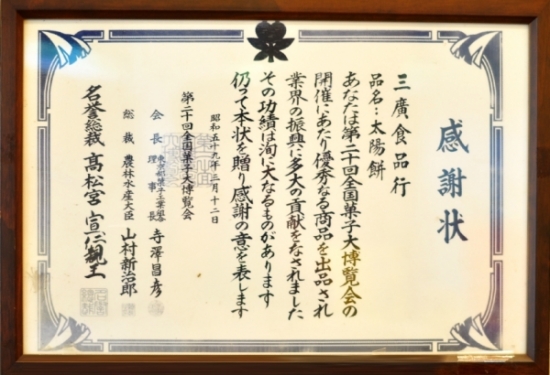 感謝状
三廣食品行
品名：太陽餅
あなたは第二十回全国菓子大博覧会の
開催にあたり優秀なる商品を出品され
業界の振興に多大の貢献をなされました
その功績は洵に大なるものがあります
仍って本状を贈り感謝の意を表します
昭和五十九年三月十二日
第二十回全国菓子大博覧会
会長 東京都菓子工業組合理事長 寺澤昌彦
総裁 農林水産大臣 山村新治郎
名誉総裁 高松宮宣仁親王